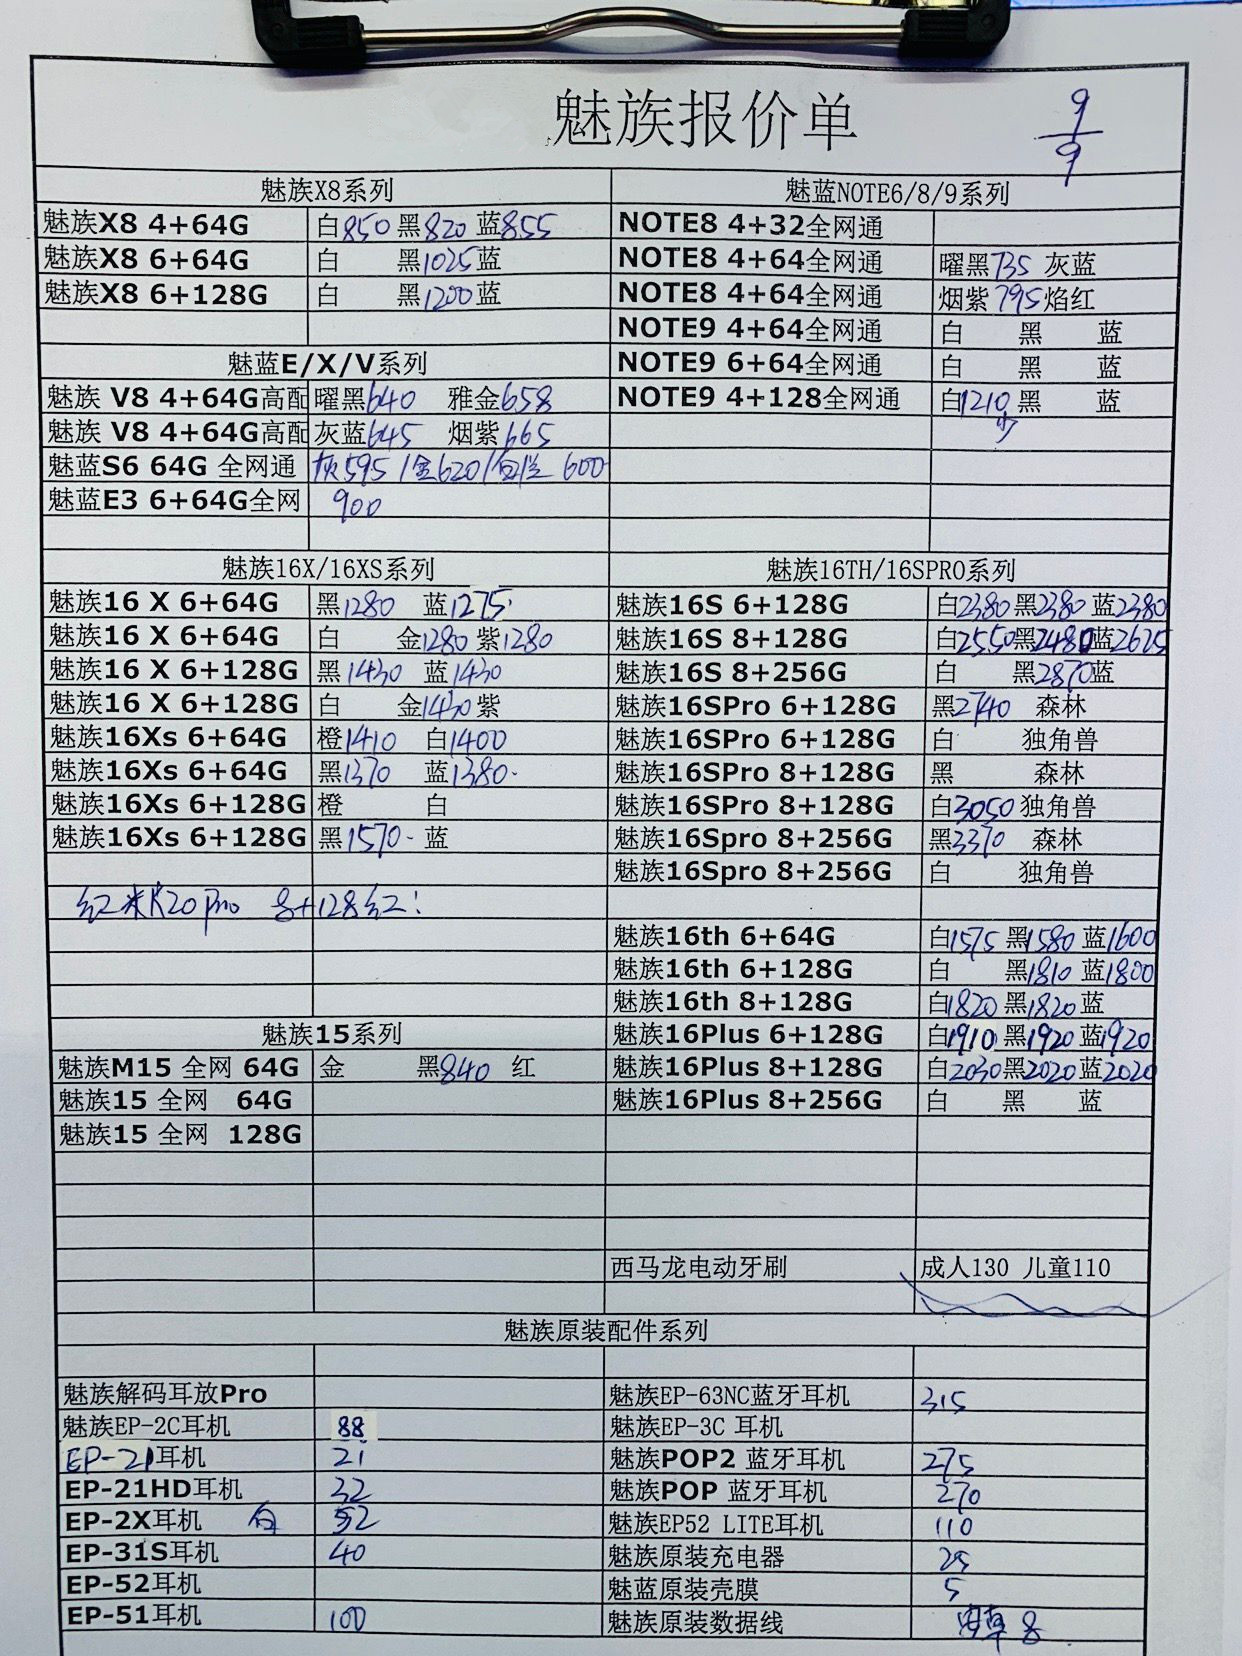 魅族报价单
9/9
魅族X8系列 魅蓝NOTE6/8/9系列
魅族X8 4+64G 白850 黑820 蓝855 NOTE8 4+32全网通
魅族X8 6+64G 白 黑1025 蓝 NOTE8 4+64全网通 曜黑735 灰蓝
魅族X8 6+128G 白 黑1200 蓝 NOTE8 4+64全网通 烟紫795 焰红
NOTE9 4+64全网通 白 黑 蓝
魅蓝E/X/V系列 NOTE9 6+64全网通 白 黑 蓝
魅族 V8 4+64G高配 曜黑640 雅金658 NOTE9 4+128全网通 白1210 黑 蓝
魅族 V8 4+64G高配 灰蓝645 烟紫665 少
魅蓝S6 64G 全网通 灰595/金620/ 600
魅蓝E3 6+64G全网 900
魅族16X/16XS系列 魅族16TH/16SPRO系列
魅族16 X 6+64G 黑1280 蓝1275 魅族16S 6+128G 白2380 黑2380 蓝2380
魅族16 X 6+64G 白 金1280 紫1280 魅族16S 8+128G 白2550 黑2480 蓝2625
魅族16 X 6+128G 黑1430 蓝1430 魅族16S 8+256G 白 黑2870 蓝
魅族16 X 6+128G 白 金1430 紫 魅族16SPro 6+128G 黑2740 森林
魅族16Xs 6+64G 橙1410 白1400 魅族16SPro 6+128G 白 独角兽
魅族16Xs 6+64G 黑1370 蓝1380 魅族16SPro 8+128G 黑 森林
魅族16Xs 6+128G 橙 白 魅族16SPro 8+128G 白3050 独角兽
魅族16Xs 6+128G 黑1570 蓝 魅族16Spro 8+256G 黑3370 森林
魅族16Spro 8+256G 白 独角兽
红米K20 pro 8+128红!
魅族16th 6+64G 白1575 黑1580 蓝1600
魅族16th 6+128G 白 黑1810 蓝1800
魅族16th 8+128G 白1820 黑1820 蓝
魅族15系列 魅族16Plus 6+128G 白1910 黑1920 蓝1920
魅族M15 全网 64G 金 黑840 红 魅族16Plus 8+128G 白2030 黑2020 蓝2020
魅族15 全网 64G 魅族16Plus 8+256G 白 黑 蓝
魅族15 全网 128G
西马龙电动牙刷 成人130 儿童110
魅族原装配件系列
魅族解码耳放Pro 魅族EP-63NC蓝牙耳机 315
魅族EP-2C耳机 88 魅族EP-3C 耳机
EP-21耳机 21 魅族POP2 蓝牙耳机 275
EP-21HD耳机 32 魅族POP 蓝牙耳机 270
EP-2X耳机 白 52 魅族EP52 LITE耳机 110
EP-31S耳机 40 魅族原装充电器 25
EP-52耳机 魅蓝原装壳膜 5
EP-51耳机 100 魅族原装数据线 8